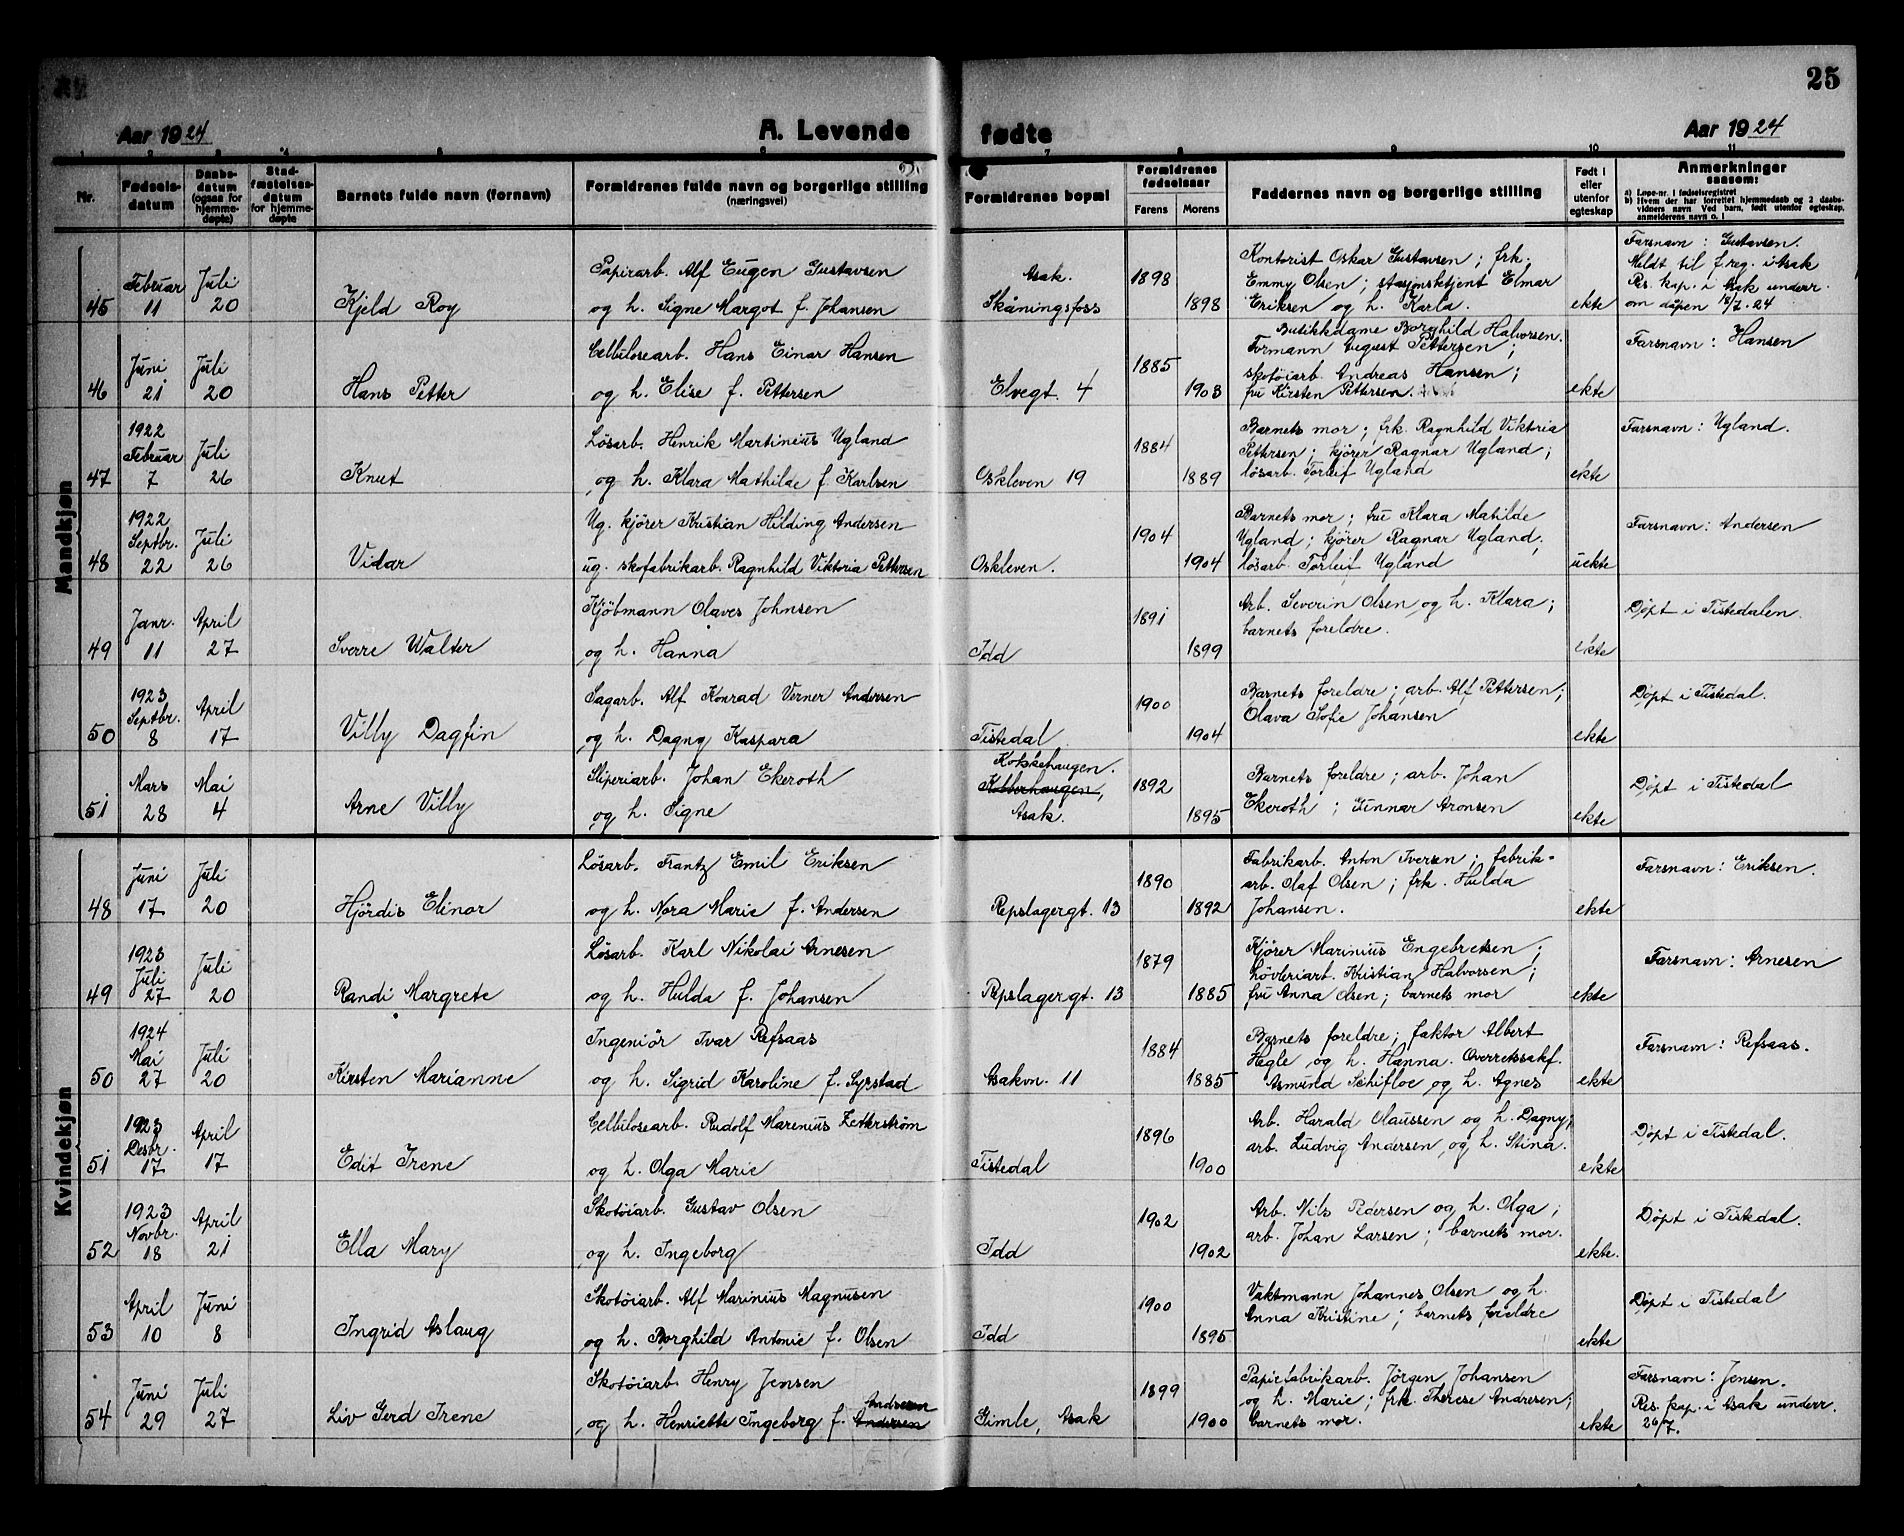 25
Aar 1924 A. Levende fødte Aar 1924
1 2 3 4 5 6 7 8 9 10 11
Nr. Fødselsdatum Daabsdatum (ogsaa for hjemmedøpte) Stadfæstelsesdatum for hjemmedøpte Barnets fulde navn (fornavn) Formldrenes fulde navn og borgerlige stilling (næringsvei) Formldrenes bopæl Formldrenes fødselsaar Farens Morens Faddernes navn og borgerlige stilling Født i eller utenfor egteskap Anmerkninger saasom:
a) Løpe-nr. i fødselsregistret
b) Hvem der har forrettet hjemmedaab og 2 daabsvidners navn Ved barn, født utenfor egteskap, anmelderens navn o. l
Mandkjøn
45 Februar 11 Juli 20 Kjeld Roy
Papirarb. Alf Eugen Gustavsen
og h. Signe Margot f. Johansen
Asak.
Skåningsfoss
1898 1898
Kontorist Oskar Gustavsen; frk.
Emmy Olsen; stasjonsktjent Elmar
Eriksen og h. Karla.
ekte
Farsnavn: Gustavsen.
Meldt til f.reg. i Asak
Res. kap. i Asak underr.
om dåpen 18/7.24
46 Juni 21 Juli 20 Hans Petter
Cellulosearb. Hans Einar Hansen
og h. Elise f. Pettersen
Elvegt. 4
1885 1903
Butikkdame Borghild Halvorsen.
Formann August Pettersen;
skotöiarb. Andreas Hansen;
fru Kirsten Pettersen.
ekte
Farsnavn: Hansen
47 1922 Februar 7 Juli 26 Knut
Lösarb. Henrik Martinius Ugland
og h. Klara Mathilde f. Karlsen
Oskleven 19
1884 1889
Barnets mor; frk. Ragnhild Viktoria
Pettersen; kjörer Ragnar Ugland;
lösarb. Torleif Ugland
ekte
Farsnavn: Ugland.
48 1922 Septbr. 22 Juli 26 Vidar
Ug. kjörer Kristian Hilding Andersen
ug. skofabrikarb. Ragnhild Viktoria Pettersen
Oskleven.
1904 1904
Barnets mor; fru Klara Matilde
Ugland; kjörer Ragnar Ugland;
lösarb. Torleif Ugland
uekte
Farsnavn: Andersen
49 Janr. 11 April 27 Sverre Walter
Kjöbmann Olaves Johnsen
og h. Hanna
Idd
1891 1899
Arb. Severin Olsen og h. Klara;
barnets foreldre.
ekte
Döpt i Tistedalen.
50 1923 Septbr. 8 April 17 Villy Dagfin
Sagarb. Alf Konrad Verner Andersen
og h. Dagny Kaspara
Tistedal
1900 1904
Barnets foreldre; arb. Alf Pettersen;
Olava Sofie Johansen
ekte
Döpt i Tistedal.
51 Mars 28 Mai 4 Arne Villy
Sliperiarb. Johan Ekeroth
og h. Signe
Kokkehaugen.
Kobberhaugen,
Asak.
1892 1895
Barnets foreldre; arb. Johan
Ekeroth; Ginnar Aronsen
ekte
Döpt i Tistedal
Kvindekjøn
48 Juni 17 Juli 20 Hjördis Elinor
Lösarb. Frantz Emil Eriksen
og h. Nora Marie f. Andersen
Repslagergt. 13
1890 1892
Fabrikarb. Anton Iversen; fabrik-
arb. Olaf Olsen; frk. Hulda
Johansen.
ekte
Farsnavn: Eriksen.
49 1923 Juli 27 Juli 20 Randi Margrete
Lösarb. Karl Nikolai Arnesen
og h. Hulda f. Johansen
Repslagergt. 13
1879 1885
Kjörer Marinius Engebretsen;
hövleriarb. Kristian Halvorsen;
fru Anna Olsen; barnets mor
ekte
Farsnavn: Arnesen
50 1924 Mai 27 Juli 20 Kirsten Marianne
Ingeniör Ivar Refsaas
og h. Sigrid Karoline f. Syrstad
Asakvn. 11
1884 1885
Barnets foreldre; faktor Albert
Hegle og h. Hanna. Overretssakf.
Asmund Schifloe og h. Agnes
ekte
Farsnavn: Refsaas.
51 1923 Desbr. 17 April 17 Edit Irene
Cellulosearb. Rudolf Marenius Zetterström
og h. Olga Marie
Tistedal
1896 1900
Arb. Harald Olaussen og h. Dagny;
arb. Ludvig Andersen og h. Stina.
ekte
Döpt i Tistedal.
52 1923 Novbr. 18 April 21 Ella Mary
Skotöiarb. Gustav Olsen
og h. Ingeborg
Idd
1902 1902
Arb. Nils Pedersen og h. Olga;
arb. Johan Larsen; barnets mor.
ekte.
Döpt i Tistedal.
53 April 10 Juni 8 Ingrid Aslaug
Skotöiarb. Alf Marinius Magnusen
og h. Borghild Antonie f. Olsen
Idd
1900 1895
Vaktmann Johannes Olsen og h.
Anna Kristine; barnets foreldre
ekte
Döpt i Tistedal
54 Juni 29 Juli 27 Liv Gerd Irene
Skotöiarb. Henry Jensen
Andresen
og h. Henriette Ingeborg f. Andersen
Gimle, Asak
1899 1900
Papirfabrikarb. Jörgen Johansen
og h. Marie; frk. Therese Andresen;
barnets mor.
ekte
Farsnavn: Jensen.
Res. kap. i Asak underr.
26/7.